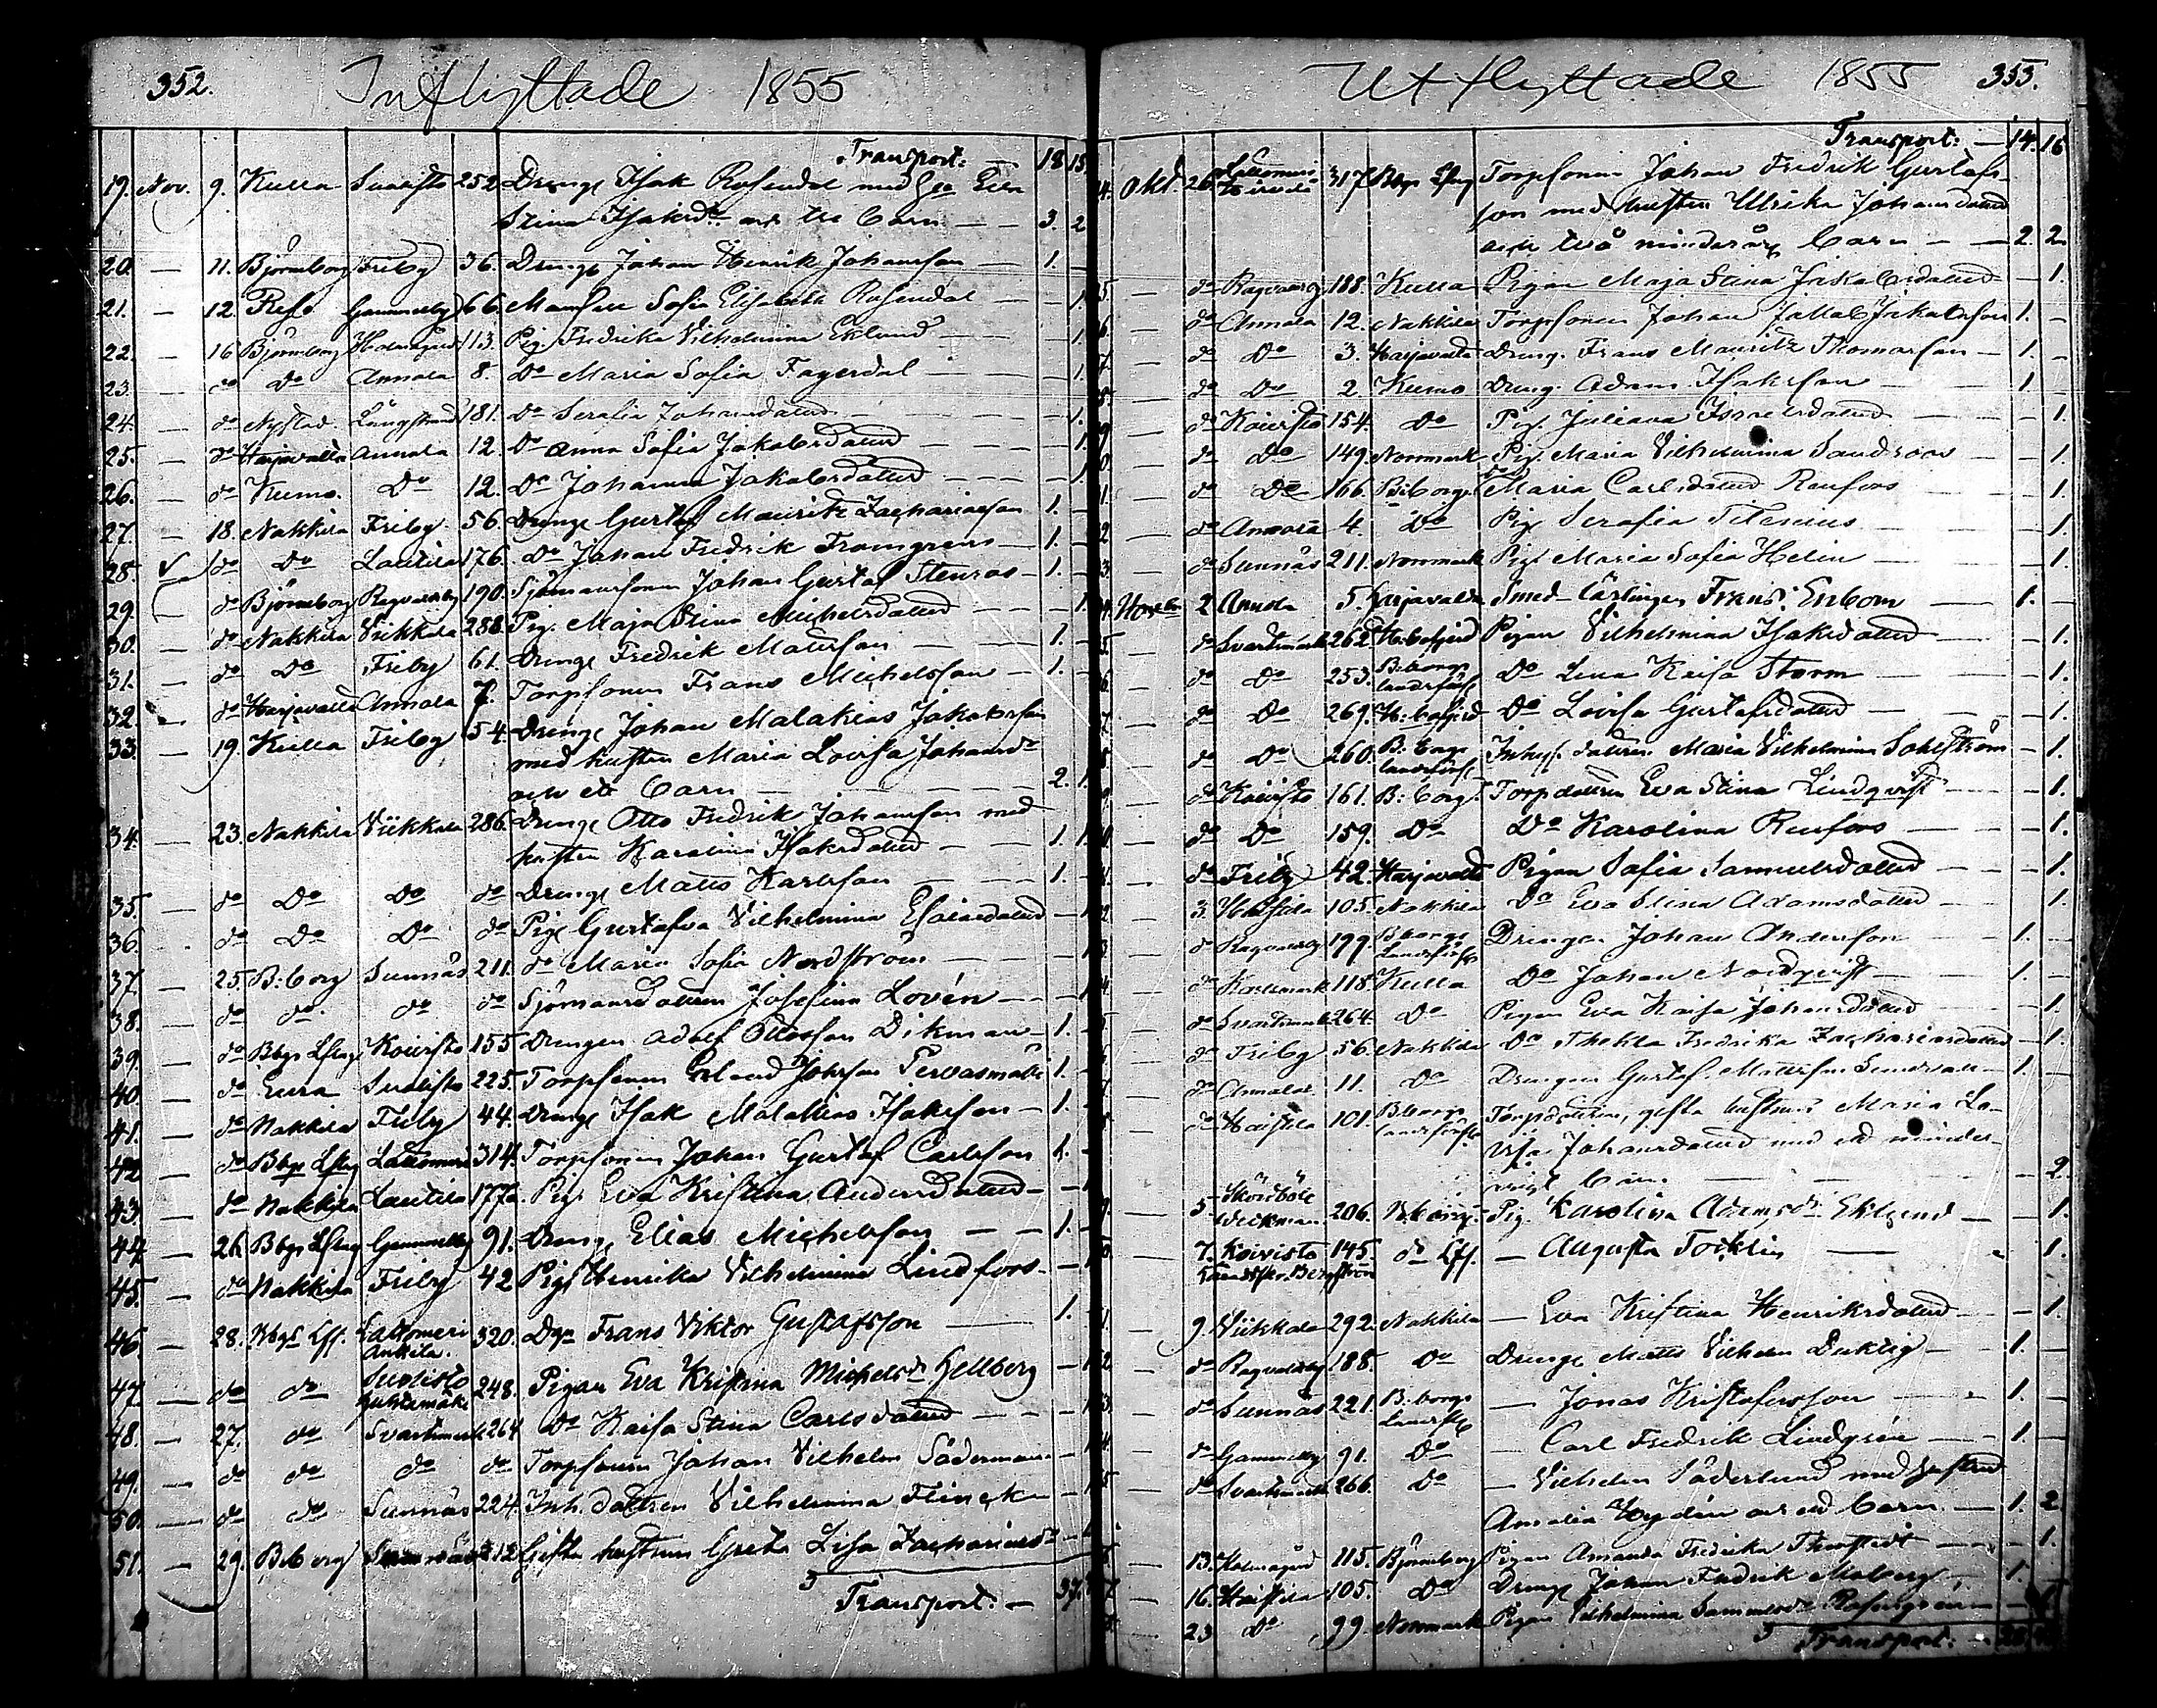 352.
Inflyttade 1855
Transport. — 18 15
19. Nov. 9. Kulla 252 Drenge Isak Rosendal med
Stina Isaksdr barn — — 3. 2
20. — 11. Björneborg Friby 36. Drenge Johan Henrik Johansson — 1. —
21. — 12. Gammelby 66. Mamsell Sofia Elisabeth Rosendal — —
22. — 16 Björneborg Holmgård 113 Pig. Fredrika Vilhelmina Eklund — —
23. do Do Annala 8. Do Maria Sofia Fagerdal — —
24. — do Nystad Långstrand 181. Do Serafia Johansdotter — — 1.
25. — do Harjavalta Annala 12. Do Anna Sofia Jakobsdotter — — 1
26. — do Kumo. Do 12. Do Johanna Jakobsdotter — — — 1
27. — 18. Nakkila Friby 56. Drenge Gustaf Maurits Zachariasson 1. —
28. do Do Lautila 176. Do Johan Fredrik Framgrens — 1. —
29. do Björneborg Ragvaldsby 190. Sjömanssonen Johan Gustaf Stenros — 1. —
30. — do Nakkila Viikkala 288. Pig. Maja Stina Michelsdotter — — — 1
31. — do Do Friby 61. Drenge Fredrik Matsson — — 1. —
32. — do Harjavalta Annala 7. Torpsonen Frans Michelsson — 1. —
33. — 19. Kulla Friby 54. Drenge Johan Malakias Jakobsson
med hustru Maria Lovisa Johansdr
och ett barn — — — — 2. 1.
34. — 23. Nakkila Viikkala 286. Drenge Otto Fredrik Johansson med
hustru Karolina Isaksdotter — — 1. 1.
35. — do Do Do do Drenge Matts Karlsson — — — 1. —
36. do Do Do do Pige Gustafva Vilhelmina Esaiasdotter —
37. — 25. B:borg Sunnäs 211. do Maria Sofia Nordström — —
38. — do do do do Sjömansdottern Josefina Lovén — —
39. — do Bbgs Lfrsg Koivisto 155 Drengen Adolf Ottosson Dikman — 1. —
40. — do Eura Suosisto 225. Torpsonen Erland Johsson Pervasmäki 1. —
41. — do Nakkila Friby 44. Drenge Isak Malakias Isaksson — 1. —
42 — do Bbgs Lfrsg Lattomeri 314. Torpsonen Johan Gustaf Carlsson 1. —
43. — do Nakkila Lautila 177. Pige Eva Kristina Andersdotter —
44 — 26. Bbgs Lfrsg Gammelby 91. Dreng Elias Michelsson — — 1. —
45. do Nakkila Friby 42 Pige Henrika Vilhelmina Lindfors —
46. — 28. Bbgs Lff. Lattomeri 320. Dgn Frans Viktor Gustafsson — 1. —
Ankila.
47. — do do Suosisto 248. Pigan Eva Kristina Michelsdr Hellberg —
Huhtamäki
48. — 27. do Svartsmark 264 Do Kaisa Stina Carlsdotter — —
49. — do do do do Torpsonen Johan Vilhelm Söderman —
50. — do do Sunnäs 224. Inh. dottren Vilhelmina Flinck —
51. — 29. B:borg 212 Gifta hustrun Greta Lisa Zachariasdr —
Transport. — 37.

Utflyttade 1855 353.
Transport. — 14. 16
4. Okt. 26. Lattomeri 317 Torpsonen Johan Fredrik Gustafs-
son med hustru Ulrika Johansdotter
och två minderårg barn — — 2. 2
5. — do Ragvaldsby 188. Kulla Pigan Maja Stina Jakobsdotter — 1.
6. — do Annala 12. Nakkila Torpsonen Johan Jakob Jakobsson 1. —
7. — do Do 3. Harjavalta Dreng. Frans Mauritz Thomasson — 1. —
8. — do Do 2. Kumo Dreng. Adam Isaksson — 1. —
9. — do Koivisto 154. Do Pig. Juliana Israelsdotter — 1.
0. — do Do 149. Norrmark Pig. Maria Vilhelmina Sandroos — — 1.
1. — do Do 166. B:borg Do Maria Carlsdotter Renfors — 1.
2 — do Annala 4. Do Pig Serafia Titenius — 1.
3. do Sunnäs 211. Norrmark Pig. Maria Sofia Helin — 1.
4. Novbr 2. Annala 5. Harjavalta Smed-lärlingen Frans Enbom — 1. —
5. do Svartsmark 262. Pigan Vilhelmina Isaksdotter — 1.
6. — do Do 253. B:borgs landsförs. Do Lena Kaisa Storm — 1.
7. — do Do 269. Do Lovisa Gustafsdotter — — 1.
8 do Do 260. B:borgs landsförs. Inhys. dottren Maria Vilhelmina Sohlström — 1.
9. — do Koivisto 161. B:borg. Torpdottren Eva Stina Lindqvist — — 1.
0. — do Do 159. Do Do Karolina Renfors — — 1.
1. — do Friby 42. Harjavalta Pigan Sofia Samuelsdotter — — 1.
2. — 3. Haistila 105. Nakkila Do Eva Stina Adamsdotter — 1.
3 — do Ragvaldsby 199. B:borgs Landsförs. Drengen Johan Andersson — 1. —
4. — do Kaasmark 118. Kulla Do Johan Nordqvist — 1. —
5 — do Svartsmark 264. Do Pigan Eva Kaisa Johansdotter — 1.
6 — do Friby 56. Nakkila Do Thekla Fredrika Zachariasdotter — 1.
7 — do Annala 11. Do Drengen Gustaf Mattsson Sundvall — 1. —
8 — do Haistila 101. B:borgs landsförs. Torpdottren, gifta hustrun Maria Lo-
visa Johansdotter med ett minder-
årigt barn — — 2.
9. — 5. Skördböle 206. B:borg. Pig. Karolina Adamsdr Eklund — — 1.
Weckman.
0. — 7. Koivisto 145. do Lff. — Augusta Tocklin — 1.
Handskr. Bergström
1. 9. Viikkala 292. Nakkila — Eva Kristina Henriksdotter — 1.
2. do Ragvaldsby 188. Do Drenge Matts Vilhelm Duktig — 1. —
3. do Sunnäs 221. B:borgs Landsförs — Jonas Kristofersson — 1. —
4. — do Gammelby 91. Do — Carl Fredrik Lindgrén — 1. —
5 do Svartsmark 266. Do — Vilhelm Söderlund med hustru
Amalia Hydén och ett barn — 1. 2.
6. 13. Holmagård 115. Björneborg Pigan Amanda Fredrika — 1.
7 16. Haistila 105. Do Drenge Johan Fredrik Moberg — 1. —
8. 23 Do 99. Norrmark Pigan Vilhelmina Samuelsdr Rosengrén — 1.
Transport. —